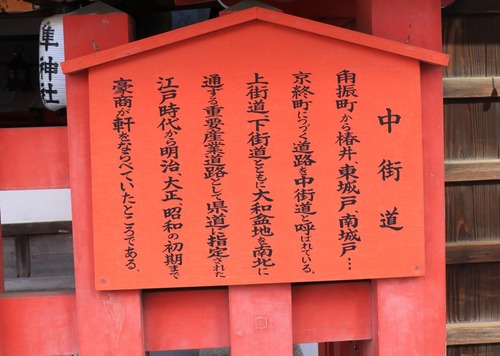 中街道
角振町から椿井、東城戸、南城戸…
京終町につづく道路を中街道と呼ばれている。
上街道、下街道とともに大和盆地を南北に
通ずる重要産業道路として県道に指定された
江戸時代から明治、大正、昭和の初期まで
豪商が軒をならべていたところである。
隼神社